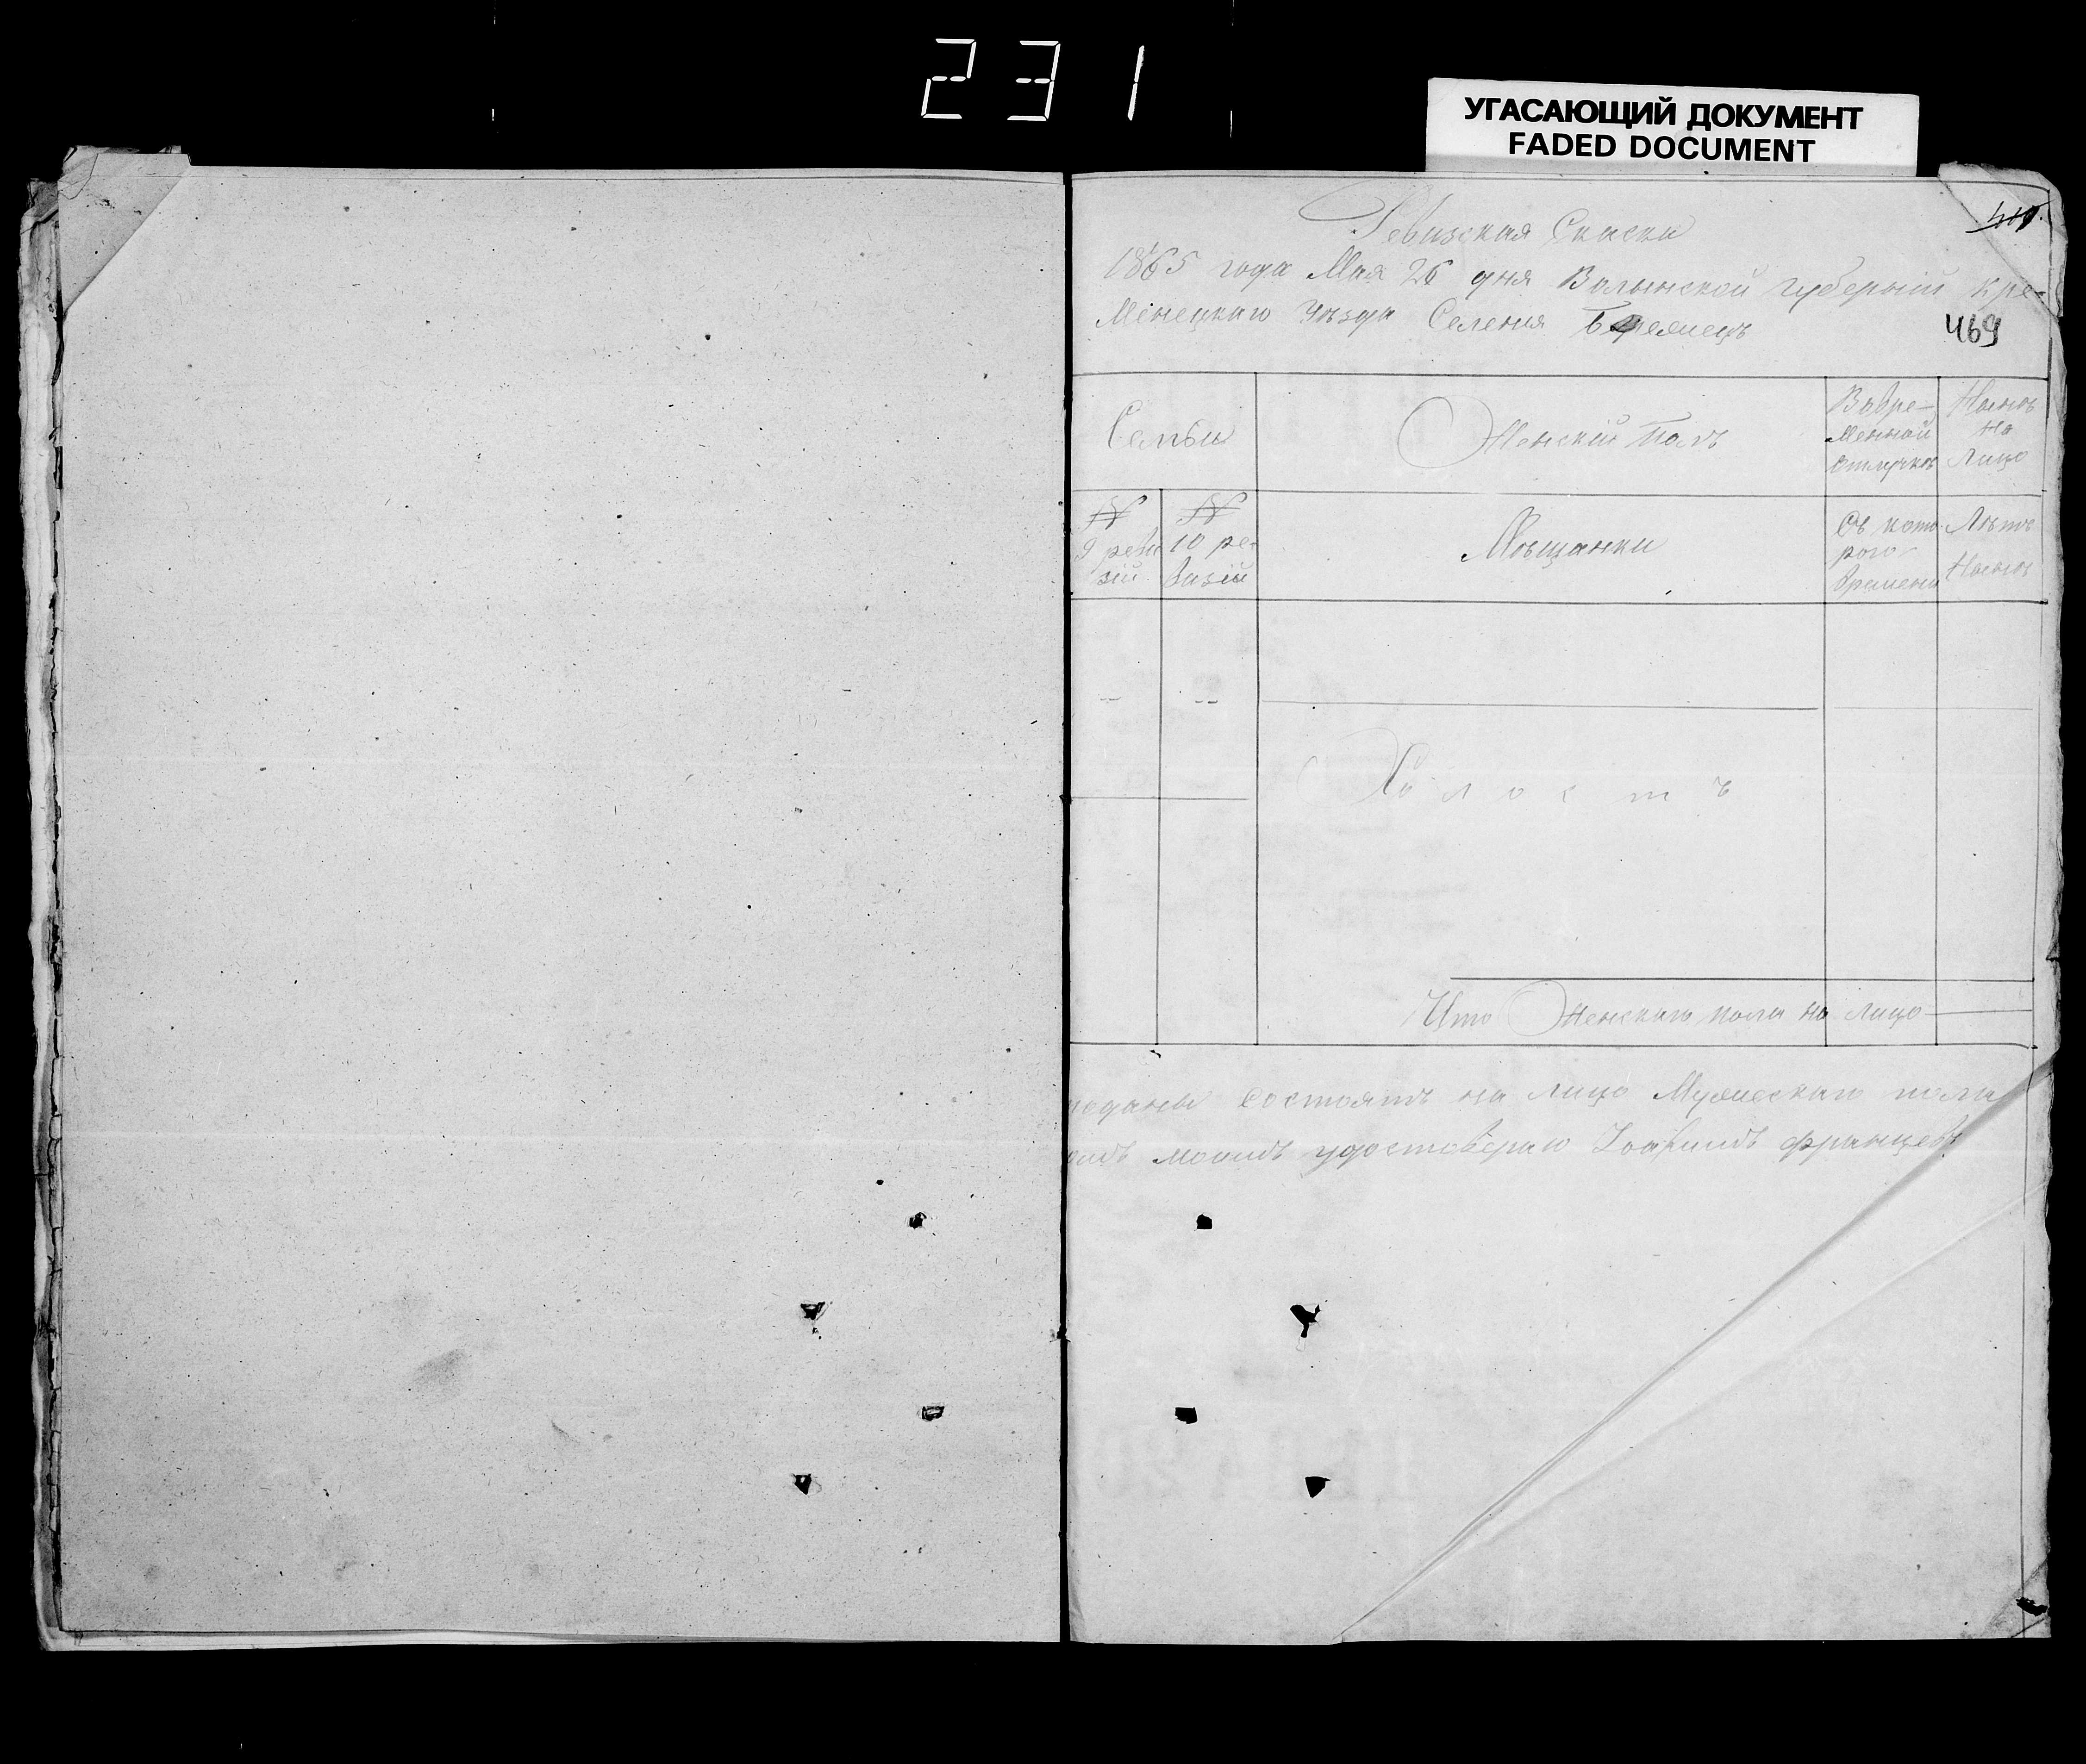 231
УГАСАЮЩИЙ ДОКУМЕНТ
FADED DOCUMENT
Ревизская Сказка
1865 года Мая 26 дня Волынской губернiй кре-
менецкаго уѣзда Селения
469
Семьи
Женскiй полъ
Вовре-
менной
отлучкѣ
Нынѣ
на
Лицо
№
9 реви
зiй
№
10 ре-
визiй
Мѣщанки
Съ кото
рого
времени
Лѣтъ
Нынѣ
Холостъ
Итого Женскаго пола на лицо
состоятъ на лицо Мужескаго пола
моимъ удостоверяю францевъ